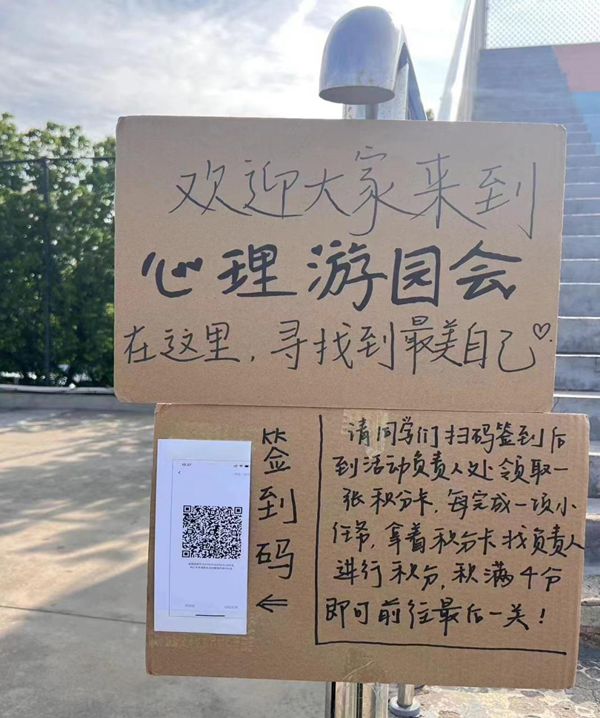 欢迎大家来到
心理游园会
在这里，寻找到最美自己♡
签到码
⇐
请同学们扫码签到后
到活动负责人处领取一
张积分卡，每完成一项小
任务，拿着积分卡找负责人
进行积分，积满4分
即可前往最后一关！